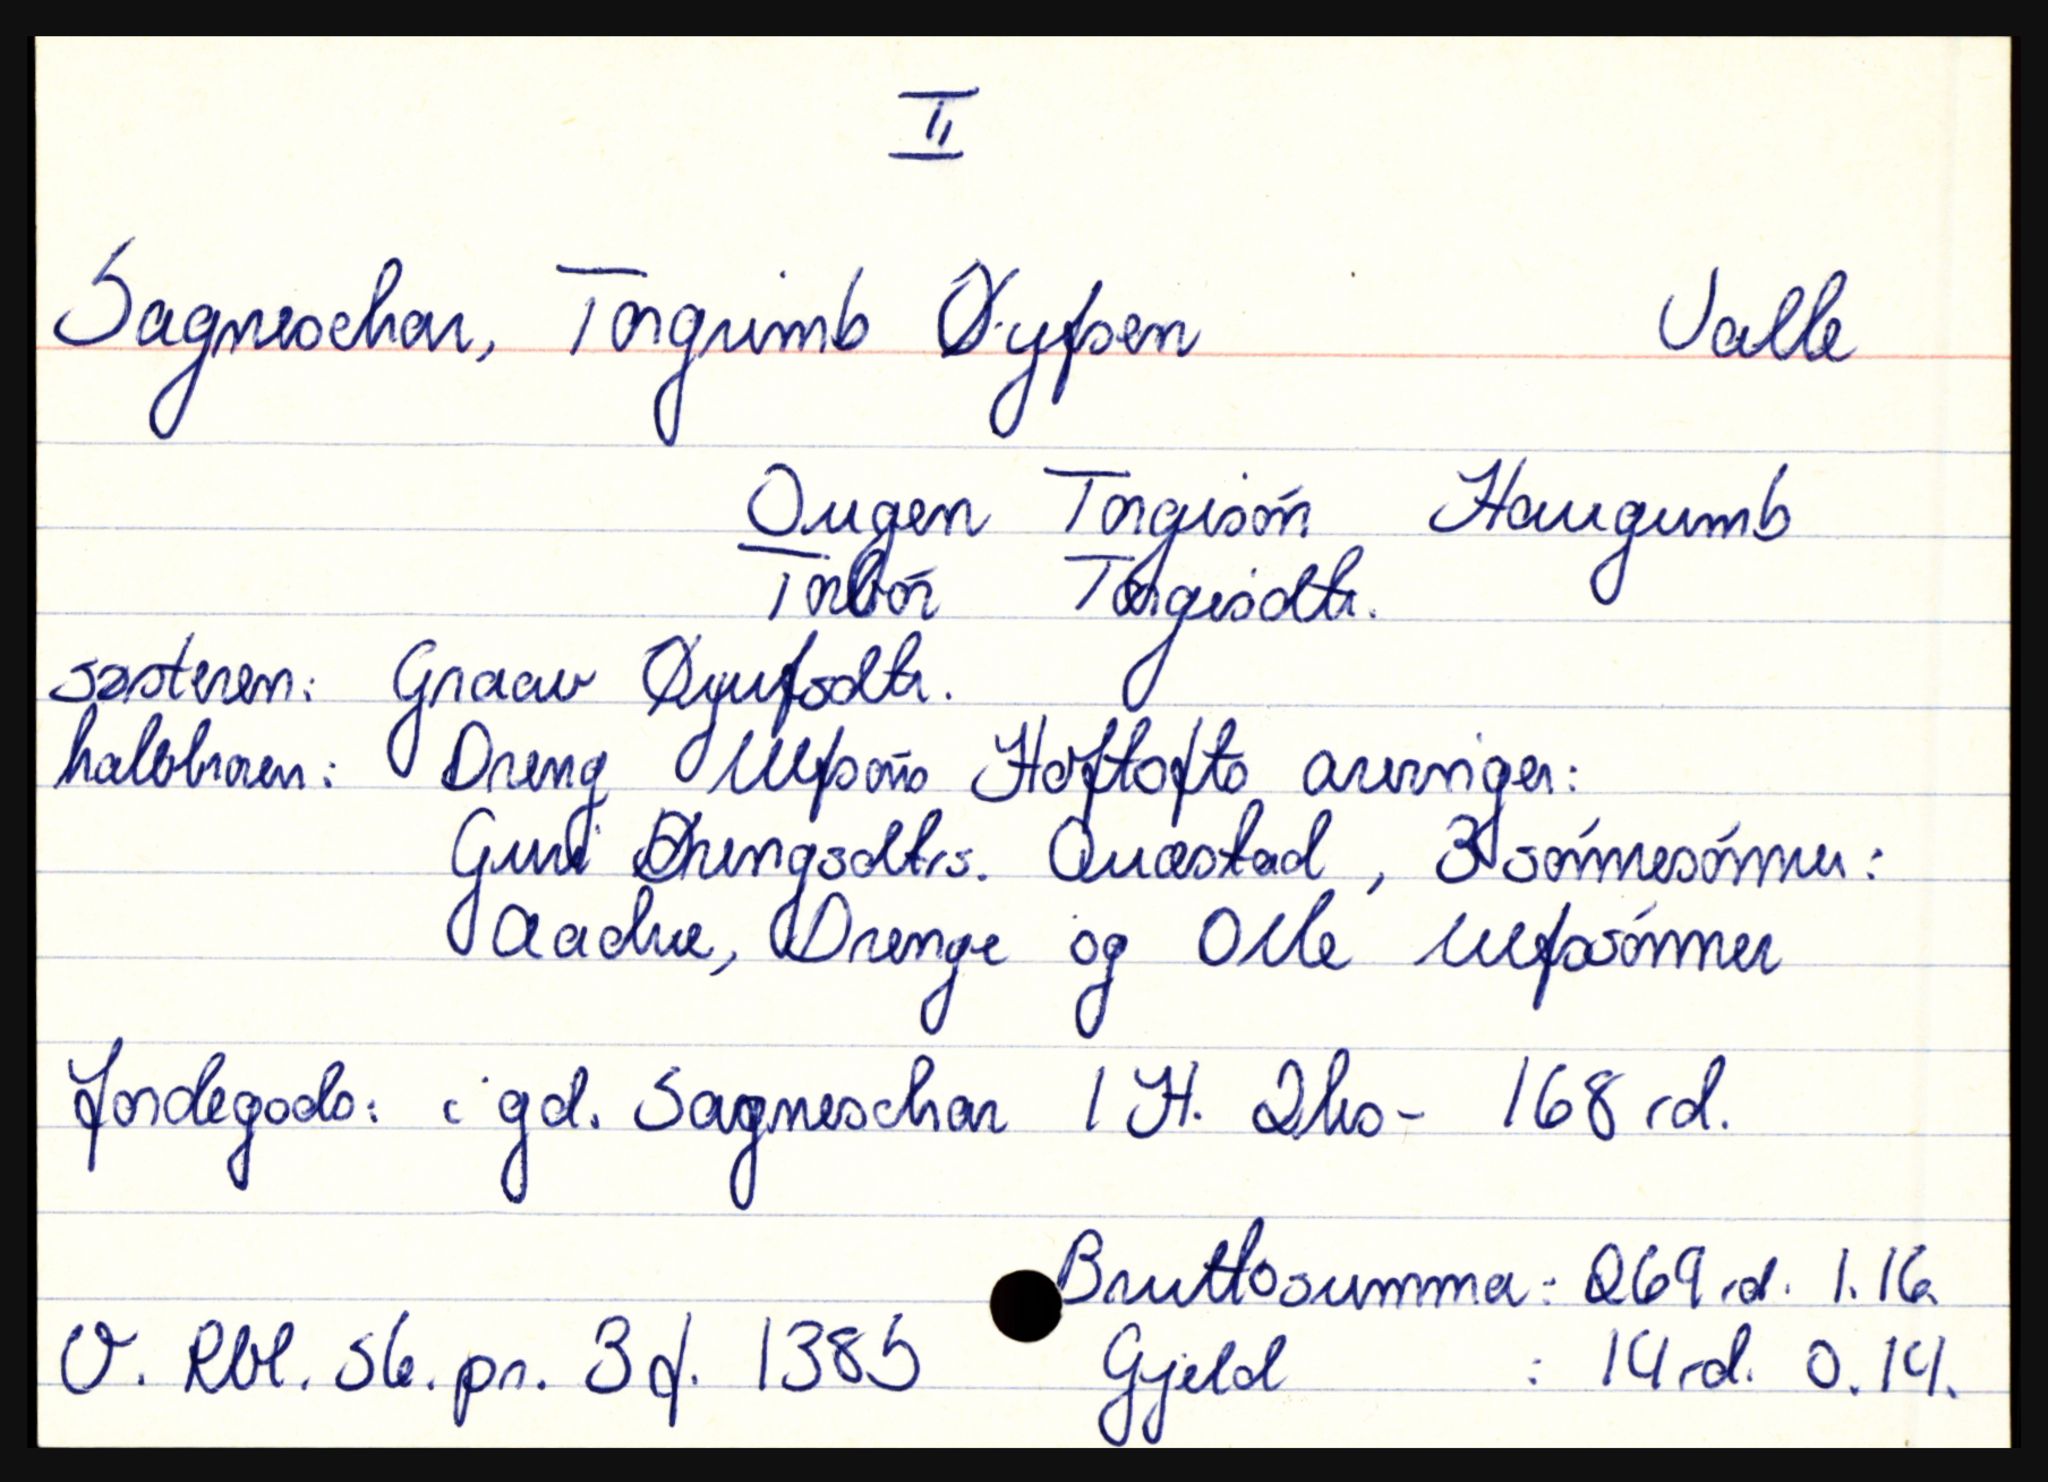 II
Sagneschar, Torgrimb Øyfsen Valle
Ougen Torgisön Haugumb
Torbör Torgisdtr.
søsteren: Graav Øyufsdtr.
halvbroren: Dreng Ulfsøns Hoftofts arvinger:
Guri Drengsdtrs. Quæstad, 3 sönnesönner:
Aadne, Drenge og Olle Ulfssönner
Jordegods: i gd. Sagneschar 1 H. 2ks- 168 rd.
Bruttosumma: 269 rd. 1.16.
V. Rbl. Sk. pr. 3 f. 138b Gjeld : 14 rd. 0.14.